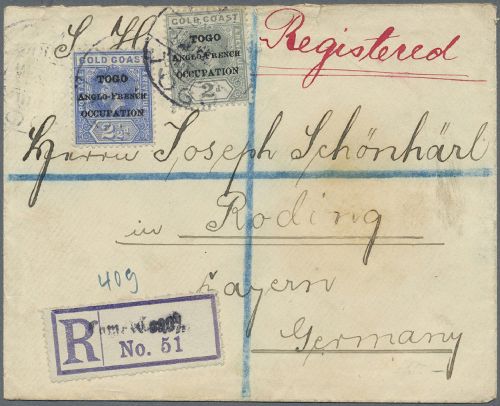 S. H.
Registered
GOLD COAST
TOGO
ANGLO-FRENCH
OCCUPATION
2½d
GOLD COAST
TOGO
ANGLO-FRENCH
OCCUPATION
2d
Herrn Joseph Schönhärl
in Roding
Bayern
Germany
409
R
No. 51